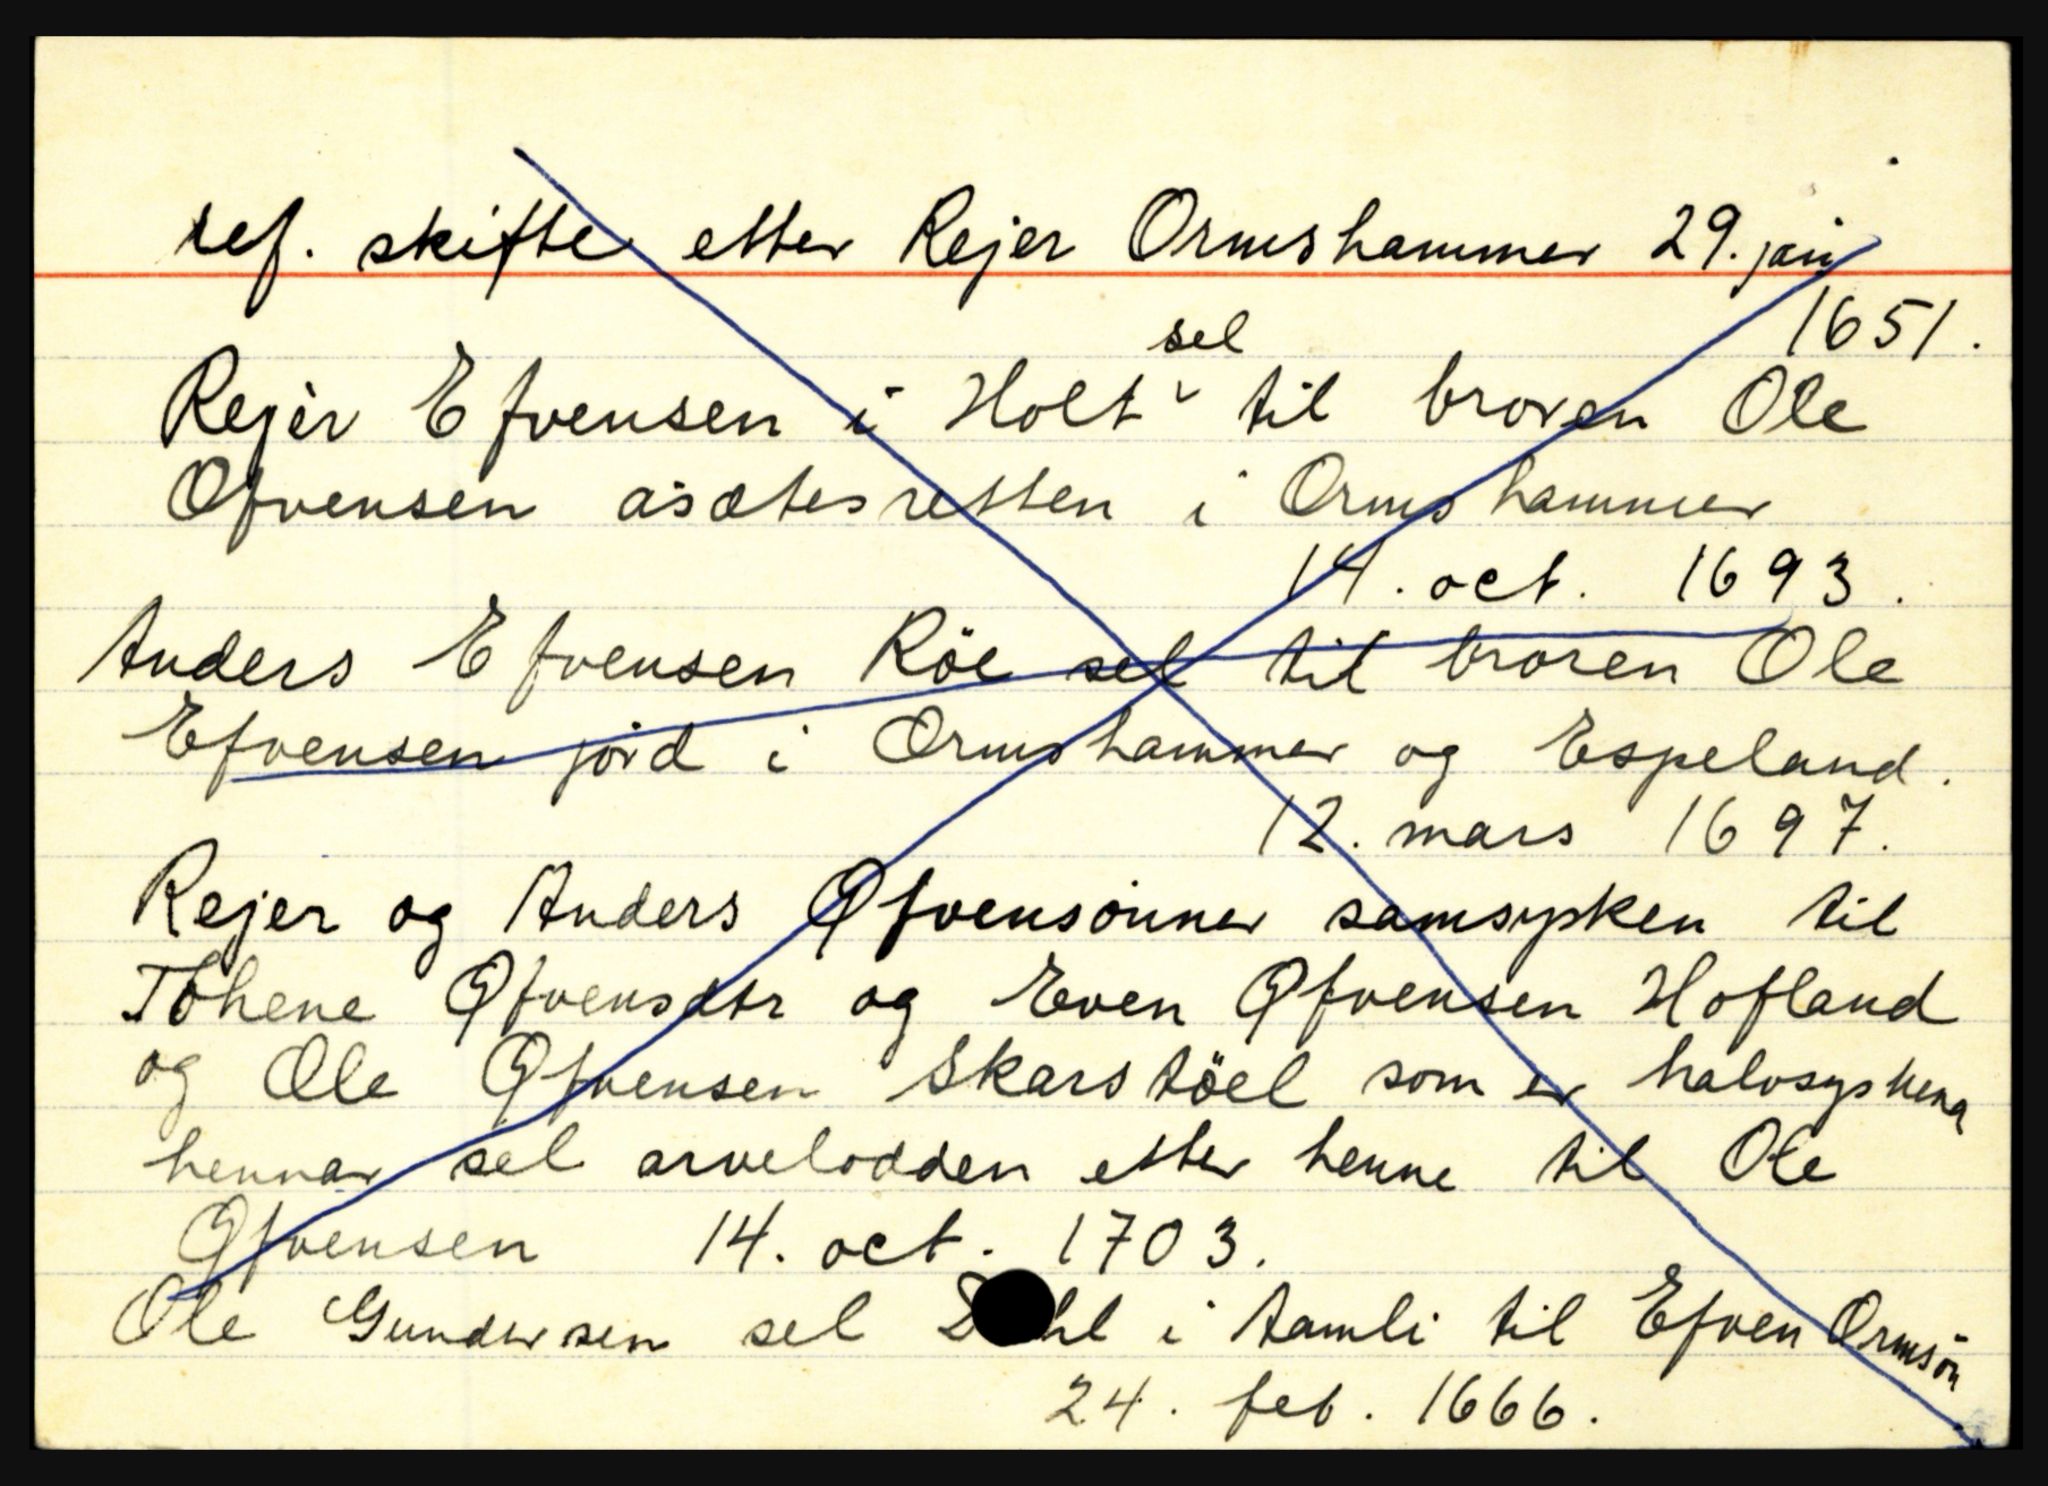 ref. skifte etter Rejer Ormshammer 29. jan
1651.
sel
Rejer Efvensen i Holt ˅ til broren Ole
Ofvensen åsætesretten i Ormshammer
14. oct. 1693.
Anders Efvensen Röe sel til broren Ole
Efvensen jord i Ormshammer og Espeland.
12. mars 1697.
Rejer og Anders Øfvensönner samsysken til
Øfvensdtr og Even Øfvensen Hofland
og Ole Øfvensen Skarstöel som er halvsyskena
hennar sel arvelodden etter henne til Ole
Øfvensen 14. oct. 1703.
Ole Gundersen sel D hl i Aamli til Efven Ormsön
24. feb. 1666.